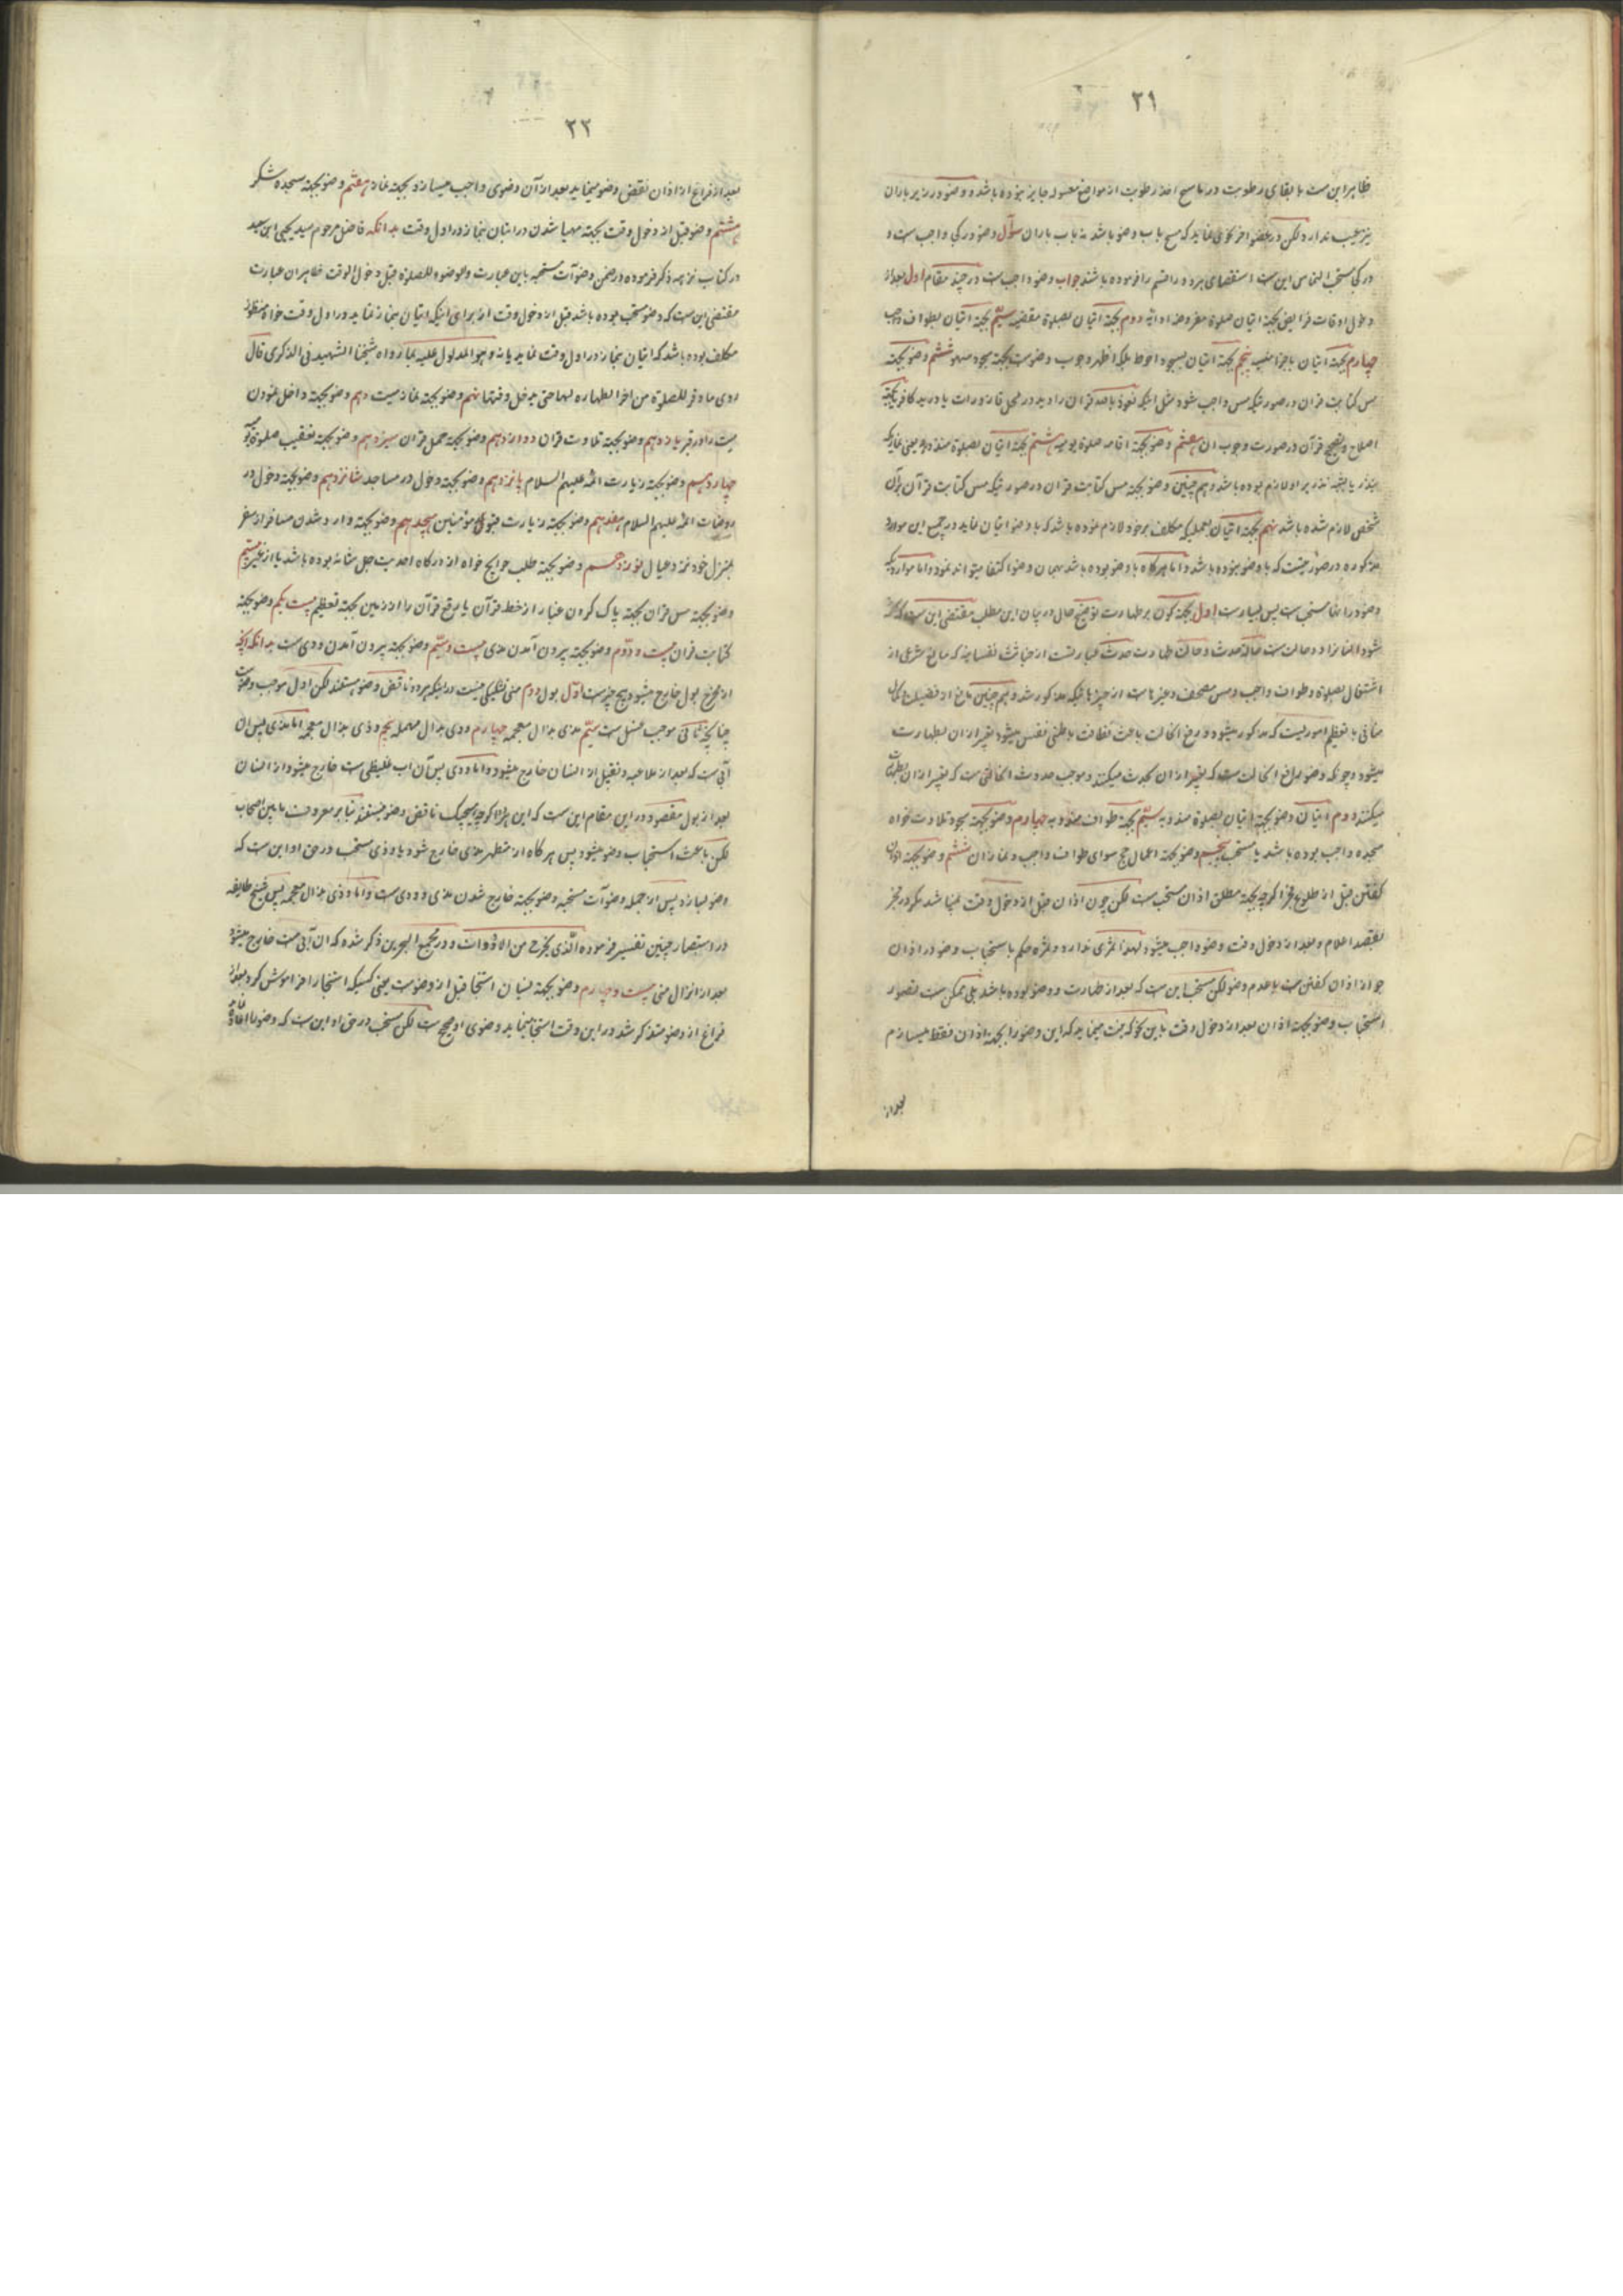 ۲۱
ظاهر این است با بقای رطوبت در ماسح اخذ رطوبت از مواضع مغسوله جایز نبوده باشد و وضو در زیر باران
نیز عیب ندارد لکن در عضو اخر نماید که مسح باب وضو باشد نه باب باران سؤال وضو در کی واجب است و
در کی مستحب التماس این است استقصای هر دو قسم را فرموده باشند جواب وضو واجب است در چند مقام اول بعد از
دخول اوقات فرایض بجهة اتیان صلوة مفروضه ادائیه دوم بجهة اتیان بصلوة مقضیه سیّم بجهة اتیان بطواف واجب
چهارم بجهة اتیان باجزا منسیه پنجم بجهة اتیان بسجود احوط بلکه اظهر وجوب وضوست بجهة سجود سهو ششم وضو بجهة
مس کتابت قران در صورتیکه مس واجب شود مثل اینکه نعوذ بالله قران را دید در محل قاذورات یا در ید کافر یا بجهة
اصلاح و تصحیح قرآن در صورت وجوب ان هفتم وضو بجهة اقامه صلوة یومیه هشتم بجهة اتیان بصلوة منذوره یعنی نمازیکه
بنذر یا بغیر نذر بر او لازم بوده باشد و هم چنین وضو بجهة مس کتابت قران در صورتیکه مس کتابت قرآن بر آن
شخص لازم شده باشد نهم بجهة اتیان بعملیکه مکلف بر خود لازم نموده باشد که با وضو اتیان نماید در جمیع این موارد
مذکوره در صورتیست که با وضو نبوده باشد و اما هر گاه با وضو بوده باشد بهمان وضو اکتفا میتواند نمود و اما مواردیکه
وضو در انها مستحب است پس بسیار است اول بجهة کون بر طهارت توضیح حال در بیان این مطلب مقتضی این است که
شود انسانرا دو حالت است حالة حدث و حالت طهارت حدث عبارتست از خباثت نفسانیه که مانع شرعی از
اشتغال بصلوة و طواف واجب و مس مصحف و غیرها است از چیزهائیکه مذکور شد و هم چنین مانع از فضیلت و کمال
منافی با تعظیم اموریست که مذکور میشود و رفع انحالت باعث نظافت باطنی نفس میشود تعبیر از ان بطهارت
میشود و چونکه وضو رافع انحالت است که تعبیر از ان بحدث میکنند و موجب حدوث انحالتی است که تعبیر از ان بطهارت
میکنند دوم اتیان وضو بجهة اتیان بصلوة مندوبه سیّم بجهة طواف مندوبه چهارم وضو بجهة سجود تلاوت خواه
سجده واجب بوده باشد یا مستحب پنجم وضو بجهة اعمال حج سوای طواف واجب و نماز ان ششم وضو بجهة اذان
گفتن قبل از طلوع فجر اگر چه بجهة مطلق اذان مستحب است لکن چون اذان قبل از دخول وقت نمیباشد مگر در فجر
بقصد اعلام و بعد از دخول وقت وضو واجب میشود لهذا ثمری ندارد و ثمره حکم باستحباب وضو در اذان
جواز اذان گفتن است با عدم وضو لکن مستحب این است که بعد از طهارت و وضو بوده باشد بلی ممکن است تصویر
استحباب وضو بجهة اذان بعد از دخول وقت باین نحو که نیت مینماید که این وضو را بجهة اذان فقط میسازم
بعد از
۲۲
بعد از فراغ از اذان نقض وضو مینماید بعد از آن وضوی واجب میسازد بجهة نماز هفتم وضو بجهة سجده شکر
هشتم وضو قبل از دخول وقت بجهة مهیا شدن در اتیان بنماز در اول وقت بدانکه فاضل مرحوم سید یحیی ابن سعید
در کتاب نزهه ذکر فرموده در ضمن وضوآت مستحبه باین عبارت والوضوء للصلوة قبل دخول الوقت ظاهر ان عبارت
مقتضی این است که وضو مستحب بوده باشد قبل از دخول وقت از برای اینکه اتیان بنماز نماید در اول وقت خواه منظور
مکلف بوده باشد که اتیان بنماز در اول وقت نماید یا نه و هو المدلول علیه بما رواه شیخنا الشهید فی الذکری قال
روی ما وقر للصلوة من اخر الطهاره لها حتی یدخل وقتها نهم وضو بجهة نماز میت دهم وضو بجهة داخل نمودن
میت را در قبر یازدهم وضو بجهة تلاوت قران دوازدهم وضو بجهة حمل قران سیزدهم وضو بجهة تعقیب صلوة
چهاردهم وضو بجهة زیارت ائمه علیهم السلام پانزدهم وضو بجهة دخول در مساجد شانزدهم وضو بجهة دخول در
روضات ائمه علیهم السلام هفدهم وضو بجهة زیارت قبور مؤمنین هیجدهم وضو بجهة وارد شدن مسافر از سفر
بمنزل خود نزد عیال نوزدهم وضو بجهة طلب حوایج خواه از درگاه احدیت جل شانه بوده باشد یا از غیر بیستم
وضو بجهة مس قران بجهة پاک کردن غبار از خط قرآن یا برفع قرآن را از زمین بجهة تعظیم بیست یکم وضو بجهة
کتابت قران بیست و دوّم وضو بجهة بیرون آمدن مذی بیست و سیّم وضو بجهة بیرون آمدن ودی است بدانکه انچه
از مخرج بول خارج میشود پنج چیز است اوّل بول دوم منی تشکیکی نیست در اینکه هر دو ناقض وضو هستند لکن اول موجب وضوست
چنانچه ثانی موجب غسل است سیّم مذی بذال معجمه چهارم ودی بدال مهمله پنجم وذی بذال معجمه اما مذی پس ان
آبی است که بعد از ملاعبه و تقبیل از انسان خارج میشود و اما ودی پس آن اب غلیظی است خارج میشود از انسان
بعد از بول مقصود در این مقام این است که این هر سه اگر چه هیچیک ناقض وضو نیستند بنا بر معروف مابین اصحاب
لکن باعث استحباب وضو میشود پس هر گاه از متطهر مذی خارج شود یا وذی مستحب در حق او این است که
وضو بسازد پس از جمله وضوآت مستحبه وضو بجهة خارج شدن مذی و ودی است و اما وذی بذال معجمه پس شیخ طایفه
در استبصار چنین تفسیر فرموده الّذی یخرج من الادواء و در مجمع البحرین ذکر شده که ان آبی است خارج میشود
بعد از انزال منی بیست و چهارم وضو بجهة نسیان استنجا قبل از وضوست یعنی کسیکه استنجا را فراموش کرد بعد از
فراغ از وضو متذکر شد در این وقت استنجا مینماید وضوی او صحیح است لکن مستحب در حق او این است که وضو را اعاده